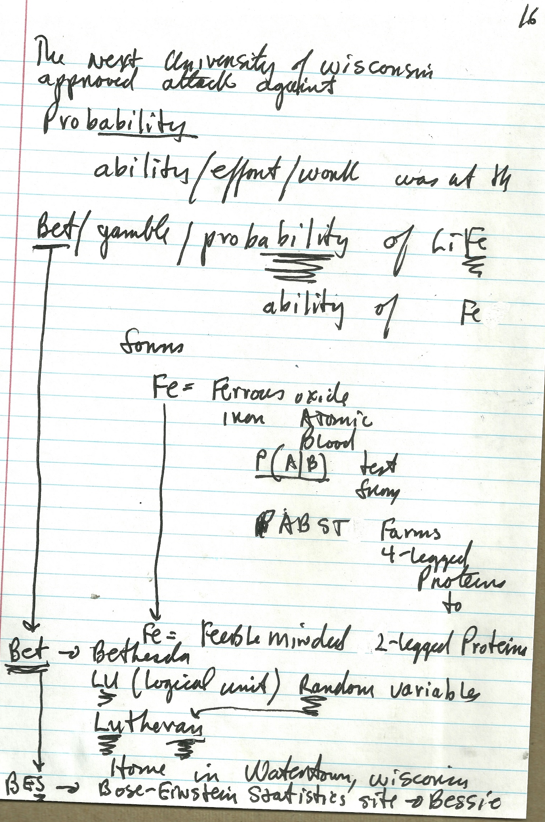 16
The next University of Wisconsin
approved attack against
Probability
ability/effort/work was at th
Bet/gamble/probability of LiFe
ability of Fe
forms
Fe = Ferrous oxide
iron Atomic
Blood
P(A|B) test
from
PABST Farms
4-legged
Proteins
to
Fe = Feeble minded 2-legged Proteins
Bet → Bethesda
LU (logical unit) Random variables
Lutheran
Home in Watertown, Wisconsin
BES → Bose-Einstein Statistics site → Bessie